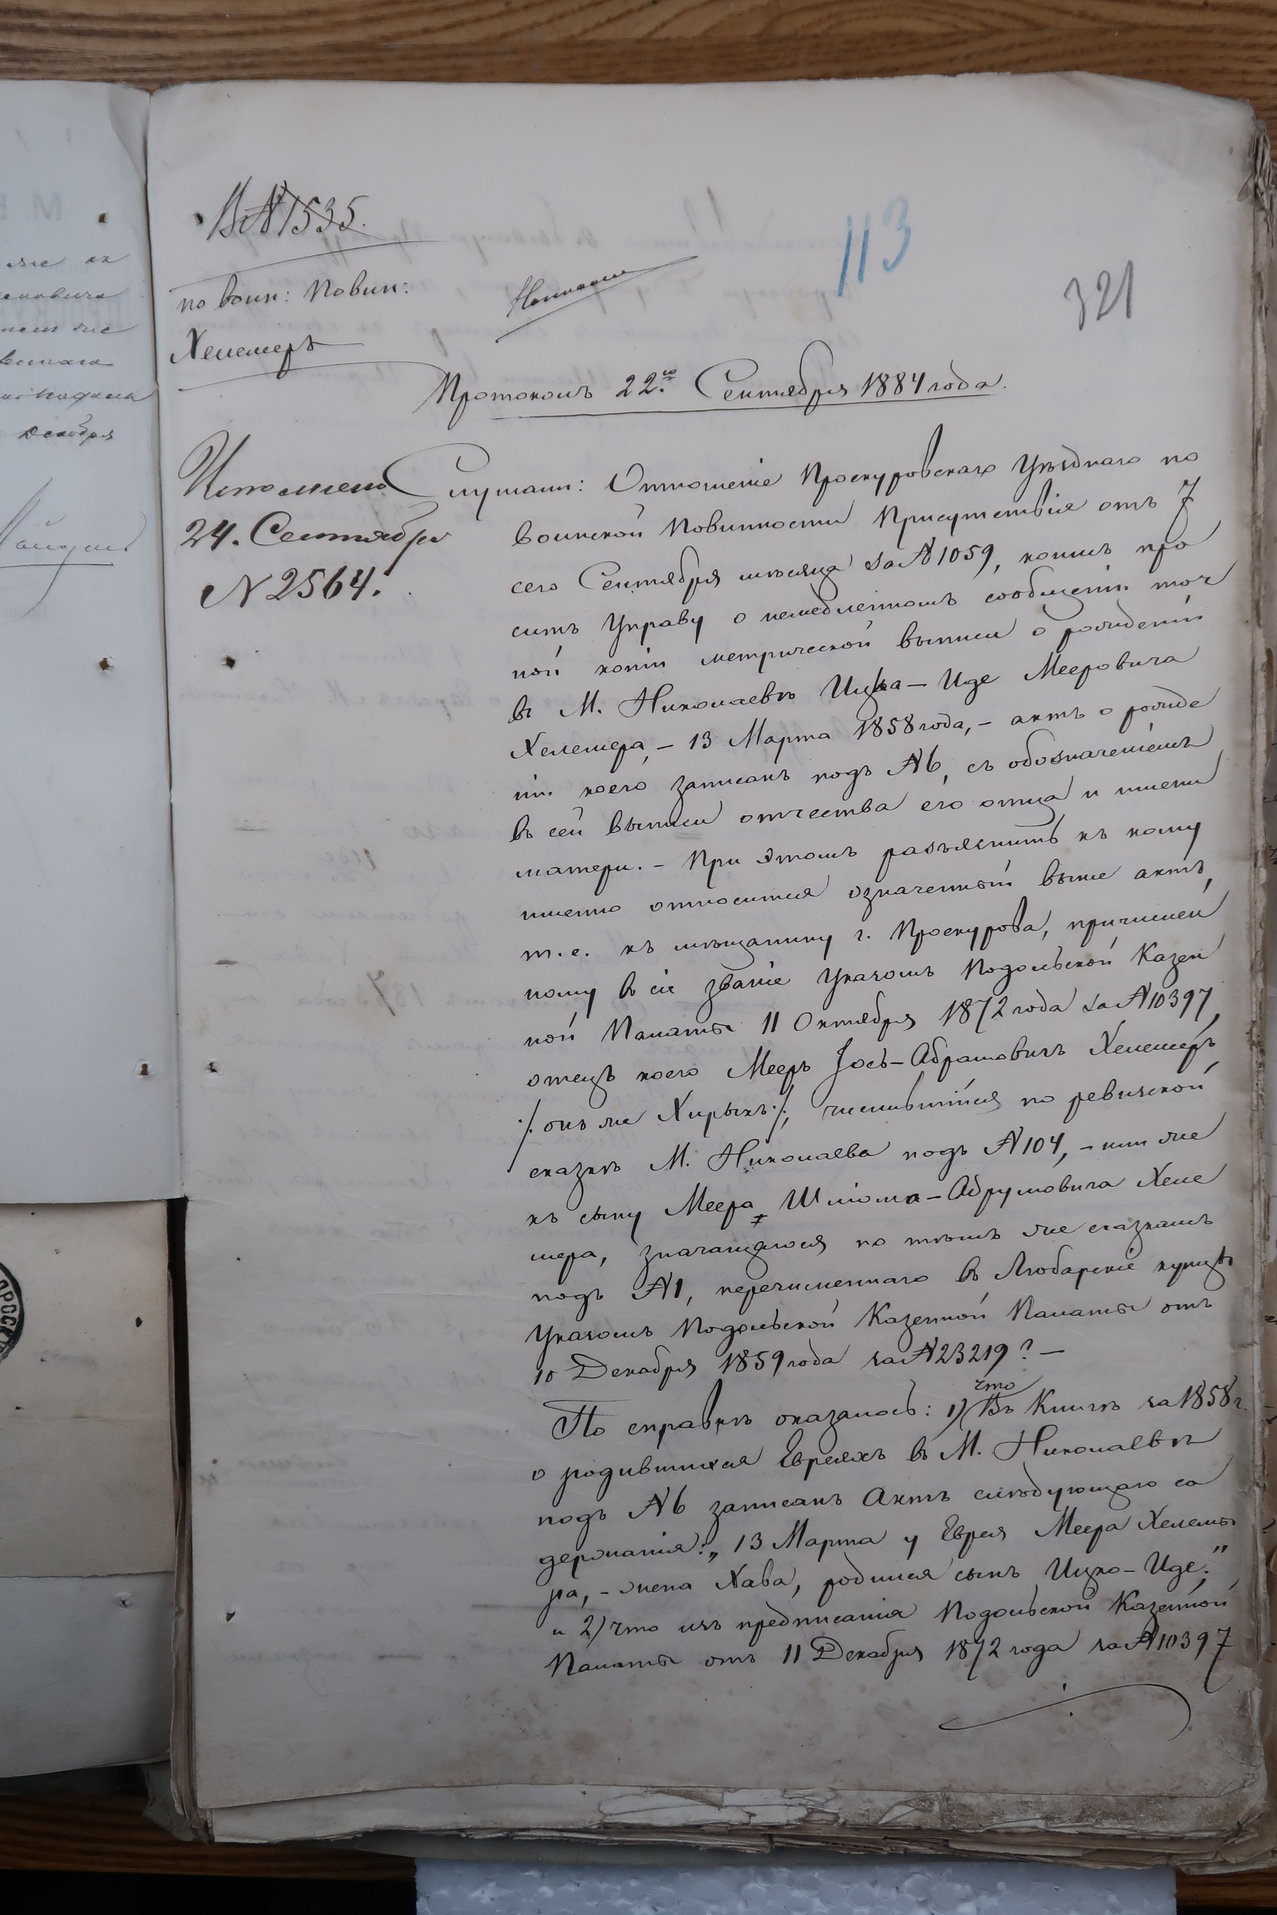 В№ 1535.
113
321
по воин: повин:
Хелемеръ
Протоколъ 22.го Сентября 1884 года.
Исполнено
24. Сентября
№ 2564.
Слушали: Отношеніе Проскуровскаго Уѣзднаго по
воинской повинности Присутствія отъ 7
сего Сентября мѣсяца за № 1059, коимъ про
ситъ Управу о немедленномъ сообщеніи точ
ной копіи метрической выписи о рожденіи
въ М. Николаевѣ Ицка-Иде Мееровича
Хелемера, – 13 Марта 1858 года, – актъ о рожде
ніи коего записанъ подъ № 6, съ обозначеніемъ
въ сей выписи отчества его отца и имени
матери. – При этомъ разъяснить къ кому
именно относится означенный выше актъ,
т. е. къ мѣщанину г. Проскурова, причислен
ному въ сіе званіе Указомъ Подольской Казен
ной Палаты 11 Октября 1872 года за № 10397,
отецъ коего Мееръ Іось-Абрамовичъ Хелемеръ
/: онъ же Хирыкъ :/, числившійся по ревизской
сказкѣ М. Николаева подъ № 104, – или же
къ сыну Меера Шліома-Абрумовича Хеле
мера, значащагося по тѣмъ же сказкамъ
подъ № 1, перечисленнаго въ Любарскіе купцы
Указомъ Подольской Казенной Палаты отъ
10 Декабря 1859 года за № 23219? –
По справкѣ оказалось: 1) что Въ Книгѣ за 1858 г.
о родившихся Евреяхъ въ М. Николаевѣ
подъ № 6 записанъ Актъ слѣдующаго со
держанія: „13 Марта у Еврея Меера Хелеме
ра, – жена Хава, родился сынъ Ицко-Иде."
и 2) что изъ предписанія Подольской Казенной
Палаты отъ 11 Декабря 1872 года за № 10397